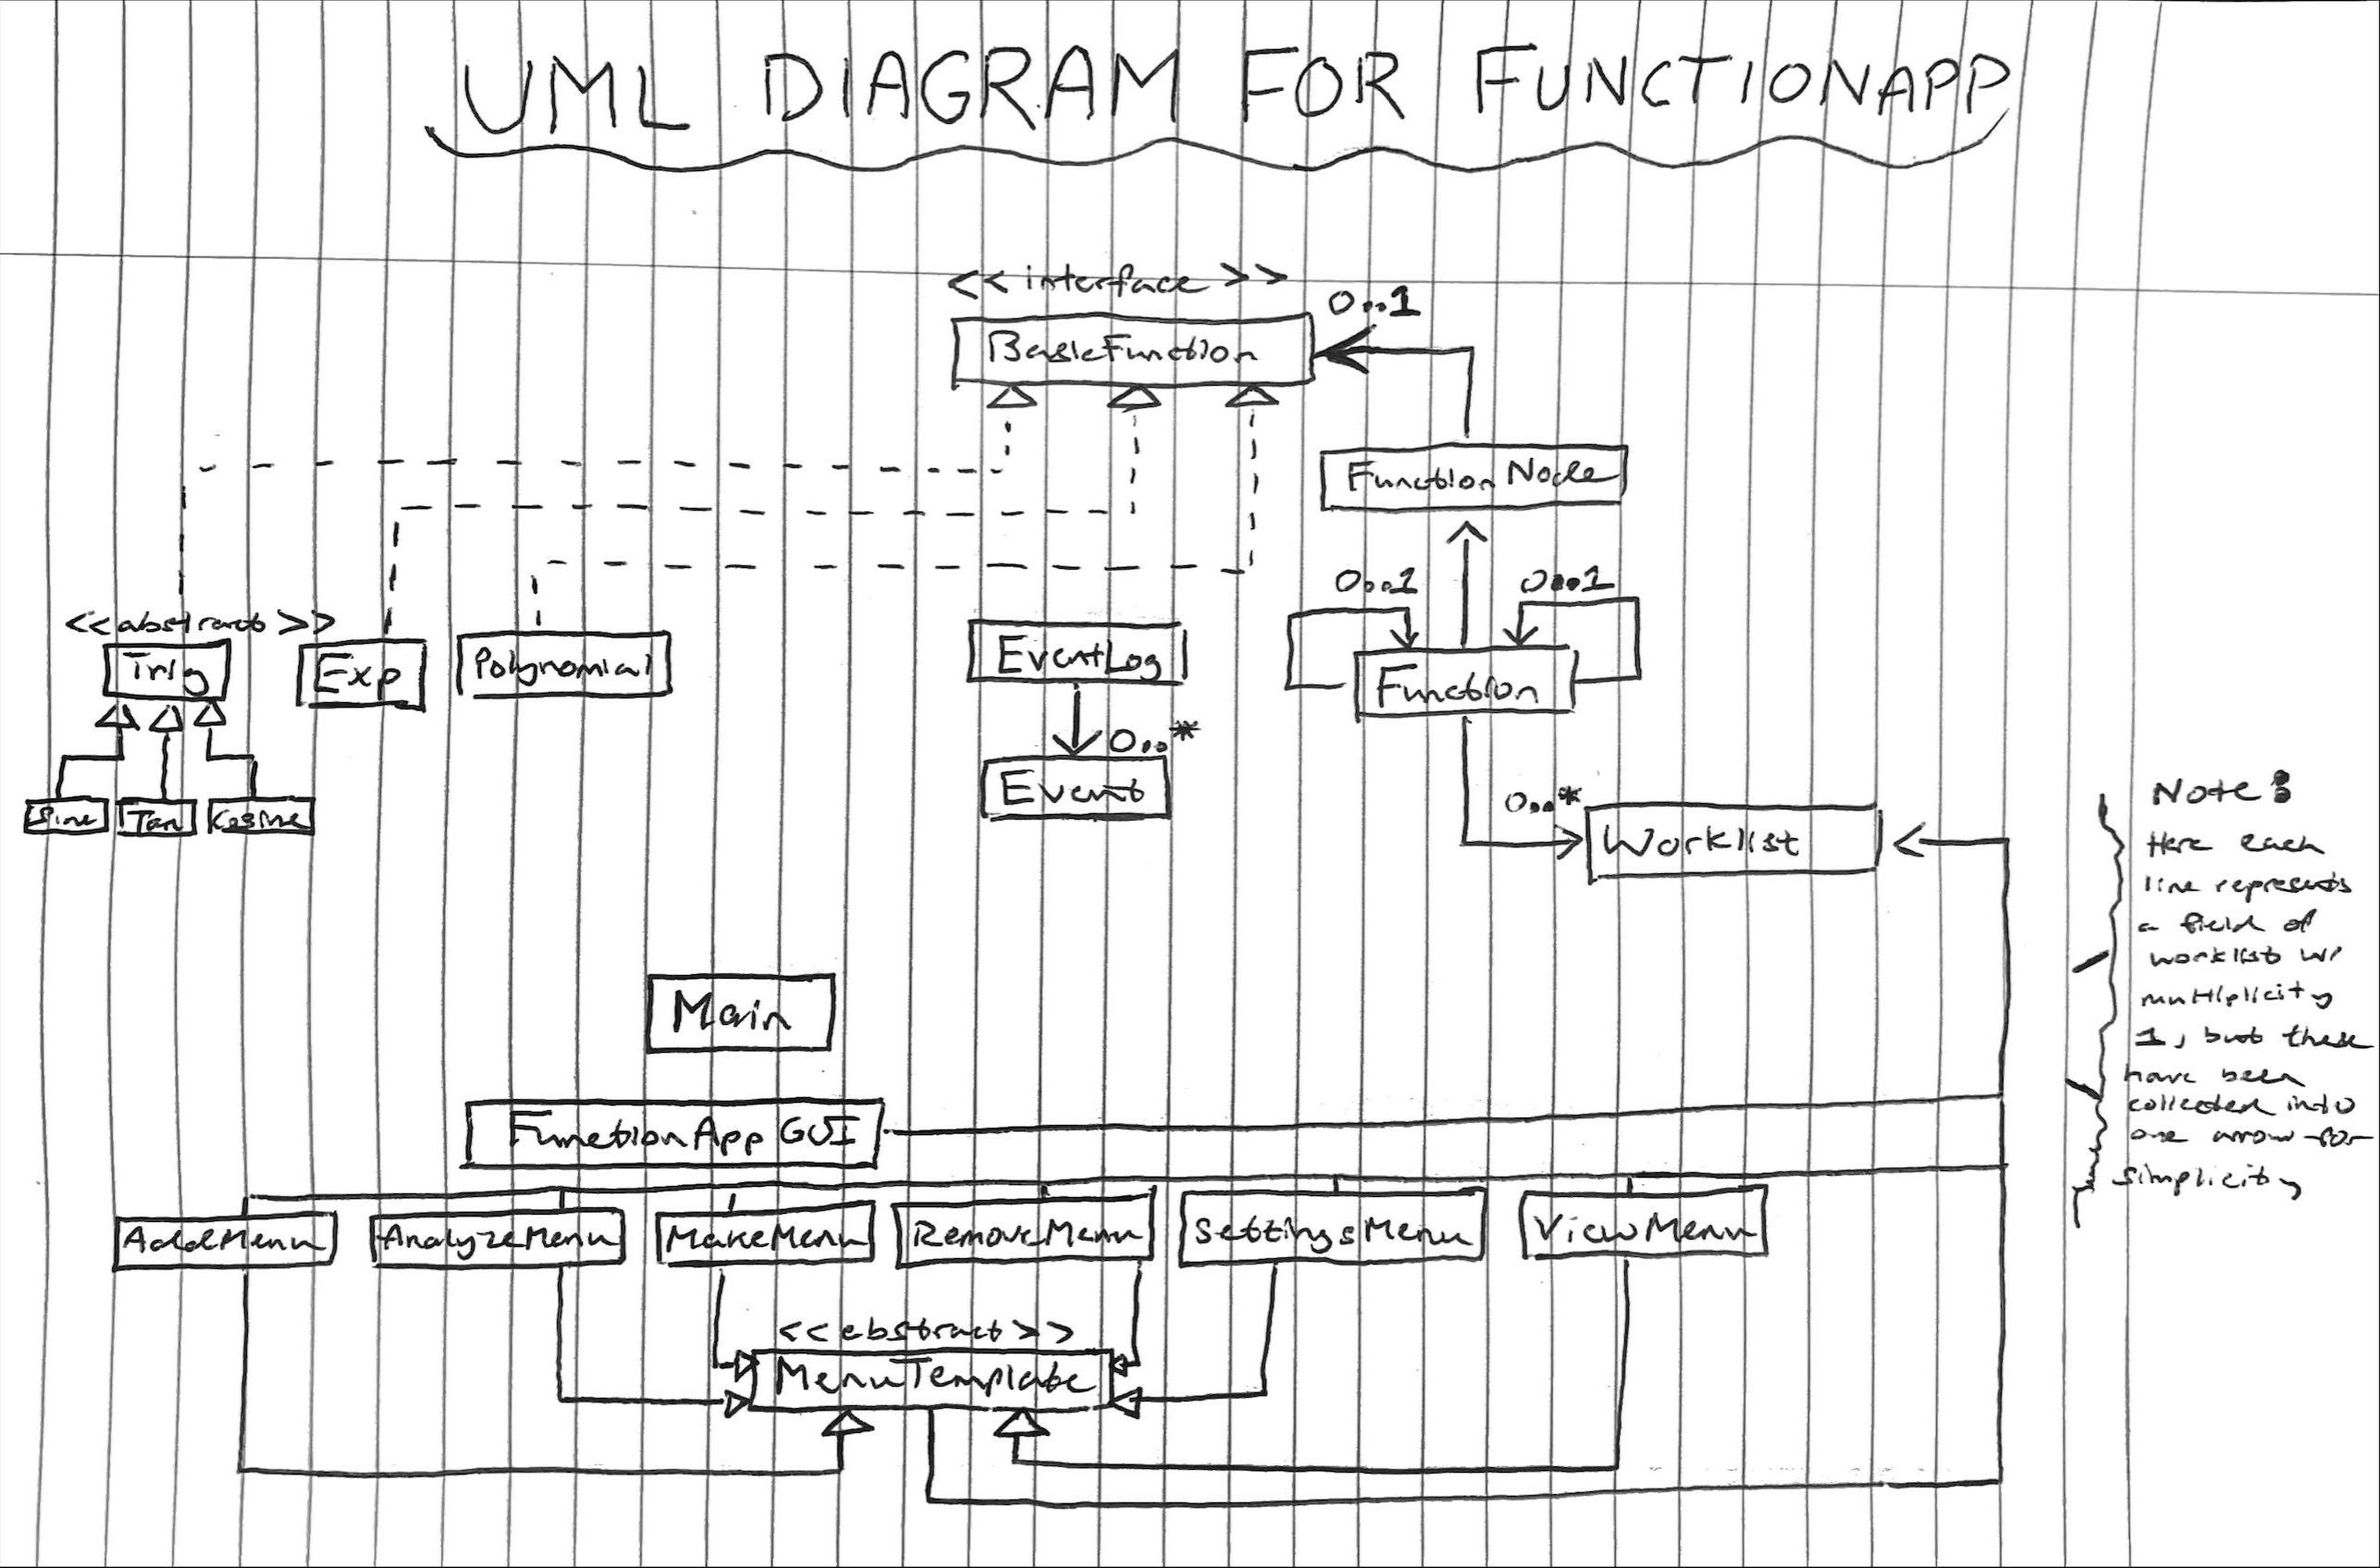 UML DIAGRAM FOR FUNCTIONAPP
<< interface >>
0..1
BasicFunction
Function Node
0..1
0..1
<<abstract>>
Trig
Exp
Polynomial
EventLog
Function
0..*
Event
Sine
Tan
Cosine
0..*
Worklist
Note:
Here each
line represents
a field of
worklist w/
multiplicity
1, but these
have been
collected into
one arrow for
simplicity
Main
FunctionApp GUI
AddMenu
AnalyzeMenu
MakeMenu
RemoveMenu
SettingsMenu
ViewMenu
<< abstract >>
MenuTemplate